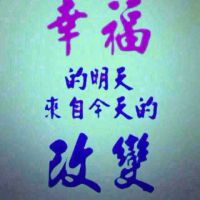 幸福
的明天
來自今天的
改變